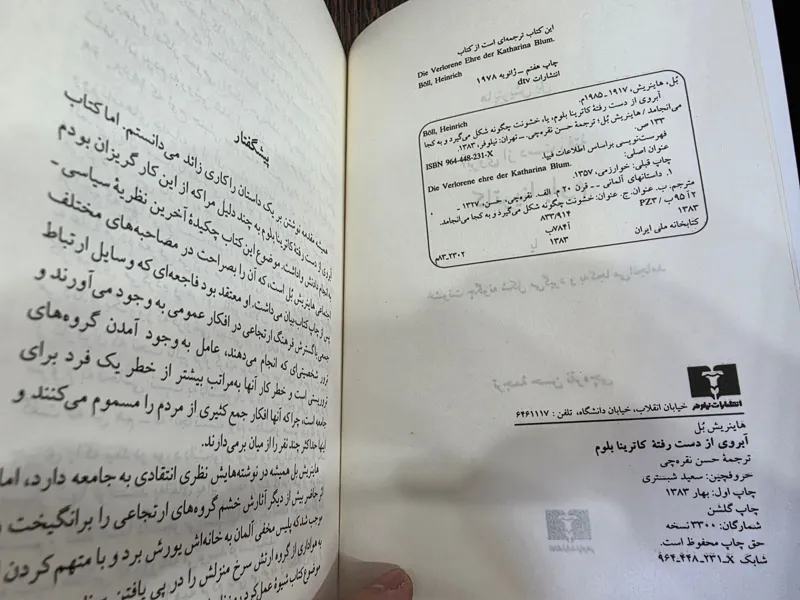 این کتاب ترجمه‌ای است از کتاب
Die Verlorene Ehre der Katharina Blum.
Böll, Heinrich
چاپ هفتم ـ ژانویه ۱۹۷۸
انتشارات dtv
بُل، هاینریش، ۱۹۱۷ ـ ۱۹۸۵م.
Böll, Heinrich
آبروی از دست رفتهٔ کاترینا بلوم، یا، خشونت چگونه شکل می‌گیرد و به کجا
می‌انجامد / هاینریش بُل؛ ترجمهٔ حسن نقره‌چی. ـ تهران: نیلوفر، ۱۳۸۳.
۱۳۳ ص.
ISBN 964-448-231-X
فهرست‌نویسی براساس اطلاعات فیپا.
عنوان اصلی:
Die Verlorene ehre der Katharina Blum.
چاپ قبلی: خوارزمی، ۱۳۵۷.
۱. داستانهای آلمانی ـ ـ قرن ۲۰ م. الف. نقره‌چی، حسن، ۱۳۲۷ ـ ،
مترجم. ب. عنوان. ج. عنوان: خشونت چگونه شکل می‌گیرد و به کجا می‌انجامد.
۲ آ ۹۵ ب / PZ۳
۸۳۳/۹۱۴
۱۳۸۳
آ۷۸۴ب
۱۳۸۳
کتابخانه ملی ایران
۲۳۰۲ـ۸۳م
انتشارات نیلوفر
خیابان انقلاب، خیابان دانشگاه، تلفن: ۶۴۶۱۱۱۷
هاینریش بُل
آبروی از دست رفتهٔ کاترینا بلوم
ترجمهٔ حسن نقره‌چی
حروفچین: سعید شبستری
چاپ اول: بهار ۱۳۸۳
چاپ گلشن
شمارگان: ۳۳۰۰ نسخه
حق چاپ محفوظ است.
شابک X ـ ۲۳۱ ـ ۴۴۸ ـ ۹۶۴
پیشگفتار
همیشه مقدمه نوشتن بر یک داستان را کاری زائد می‌دانستم. اما کتاب
آبروی از دست رفتهٔ کاترینا بلوم به چند دلیل مرا که از این کار گریزان بودم
به انجام دادنش واداشت. موضوع این کتاب چکیدهٔ آخرین نظریهٔ سیاسی ـ
اجتماعی هاینریش بُل است، که آن را بصراحت در مصاحبه‌های مختلف
پس از چاپ کتاب بیان می‌داشت. او معتقد بود فاجعه‌ای که وسایل ارتباط
جمعی با گسترش فرهنگ ارتجاعی در افکار عمومی به وجود می‌آورند و
ترور شخصیتی‌ای که انجام می‌دهند، عامل به‌وجود آمدن گروه‌های
تروریستی است و خطر کار آنها به‌مراتب بیشتر از خطر یک فرد برای
جامعه است، چرا که آنها افکار جمع کثیری از مردم را مسموم می‌کنند و
اینها حداکثر چند نفر را از میان برمی‌دارند.
هاینریش بل همیشه در نوشته‌هایش نظری انتقادی به جامعه دارد، اما
اثر حاضر بیش از دیگر آثارش خشم گروه‌های ارتجاعی را برانگیخت و
موجب شد که پلیس مخفی آلمان به خانه‌اش یورش برد و با متهم کردن
به هواداری از گروه ارتش سرخ منزلش را در پی یافتن
موضوع کتاب شیوهٔ عمل